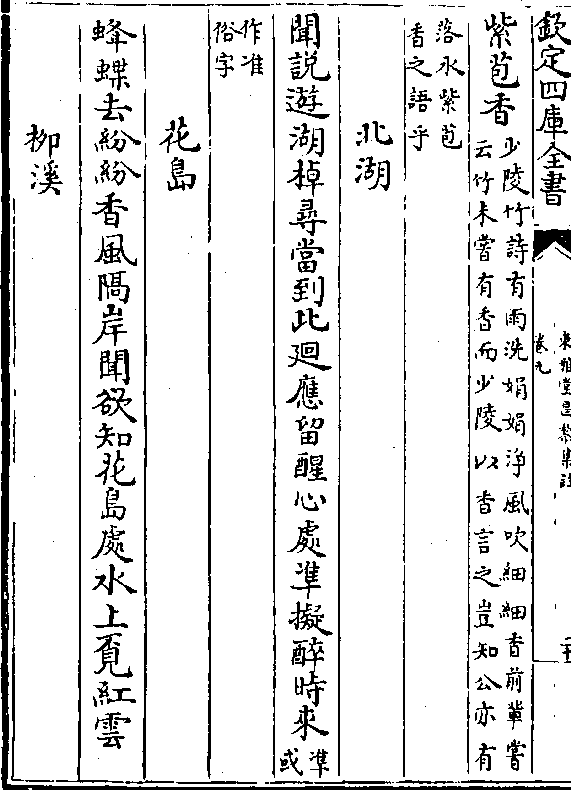 欽定四庫全書
東雅堂昌黎集註
卷九
紫苞香少陵竹詩有雨洗娟娟浄風吹細細香前輩嘗
云竹未嘗有香而少陵以香言之豈知公亦有
落水紫苞
香之語乎
北湖
聞説遊湖棹尋當到此廻應留醒心處凖擬醉時來凖
或
作准
俗字
花島
蜂蝶去紛紛香風隔岸聞欲知花島處水上覓紅雲
柳溪